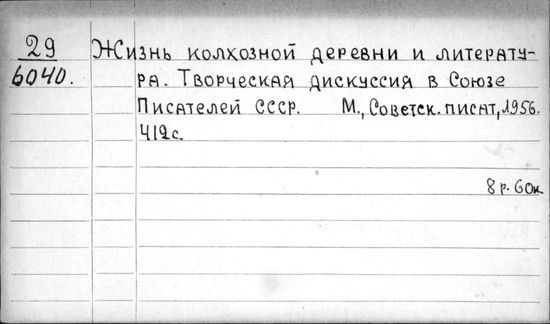 29 Жизнь колхозной деревни и литерату-
6040. ра. Творческая дискуссия в Союзе
Писателей СССР. М., Советск. писат, 1956.
412 с.
8 р. 60к